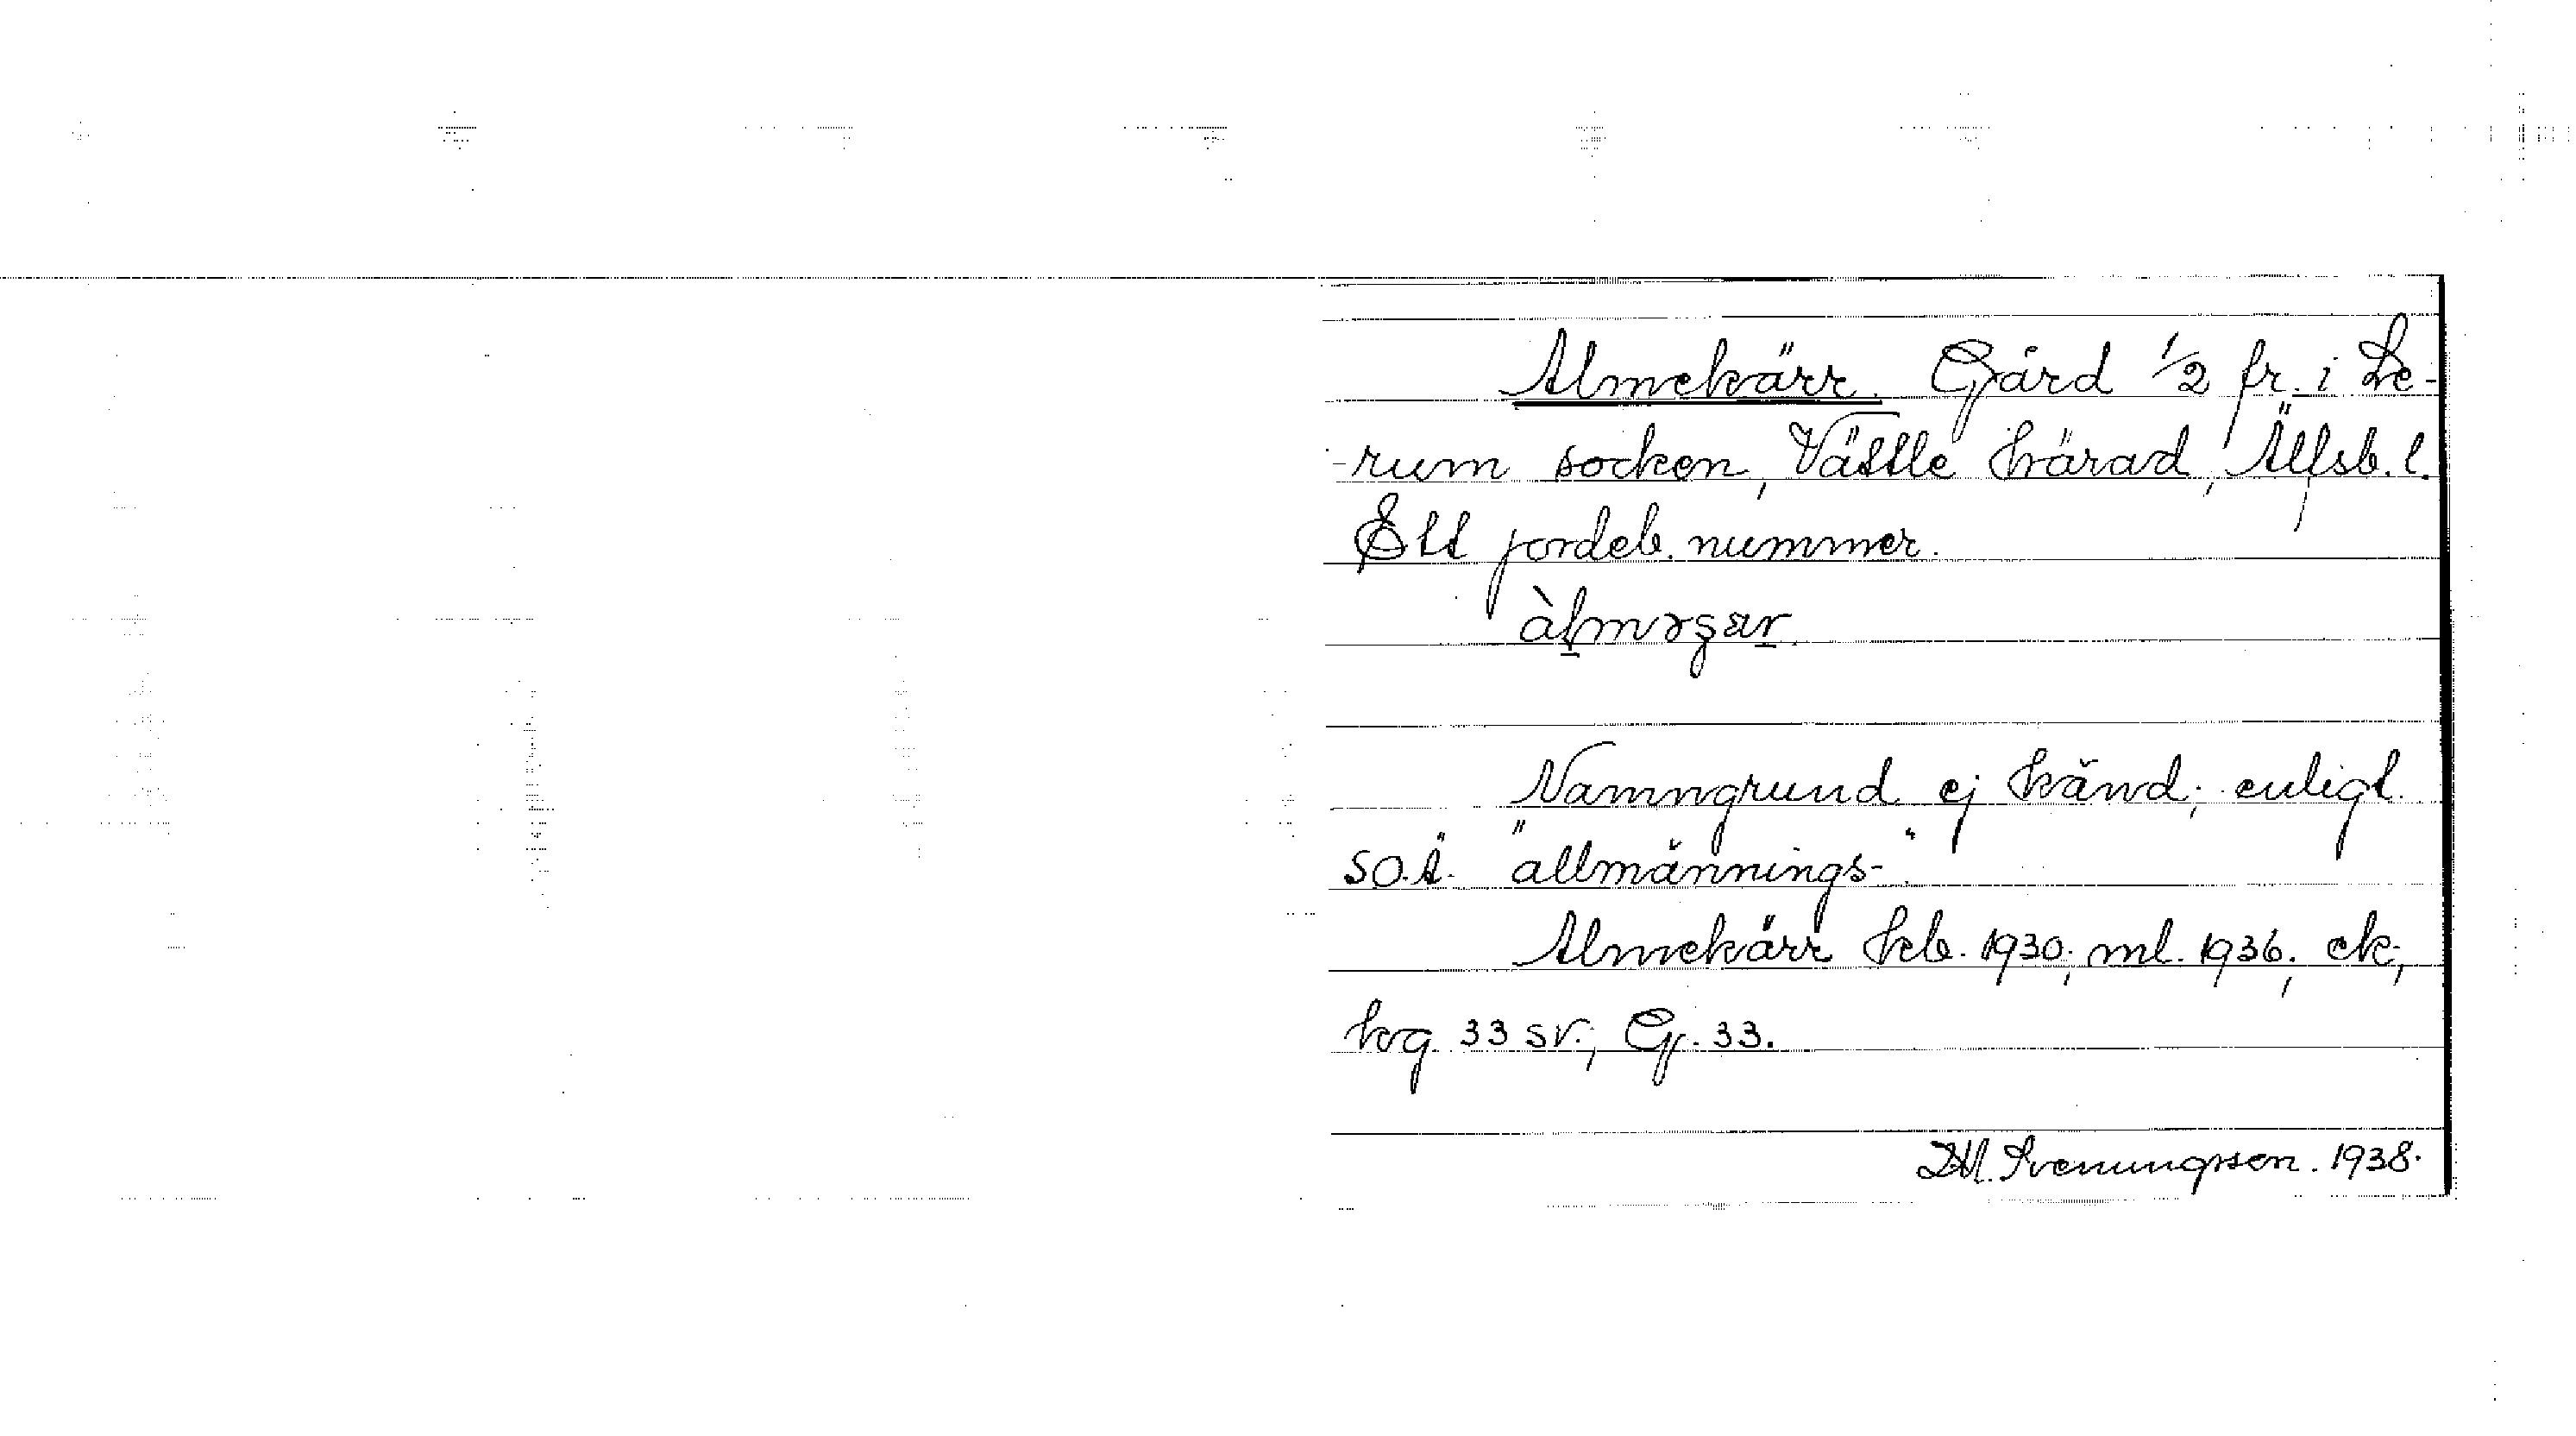 Almekärr. Gård 1/2 fr. i Le-
-rum socken, Vättle härad, Älfsb. l.
Ett jordeb. nummer.
Namngrund ej känd; enligt
SOÄ. "allmännings-".
Almekärr kb. 1930; ml. 1936; ek;
hrg 33 sv.; Gj. 33.
D.M. Svenungsson. 1938.